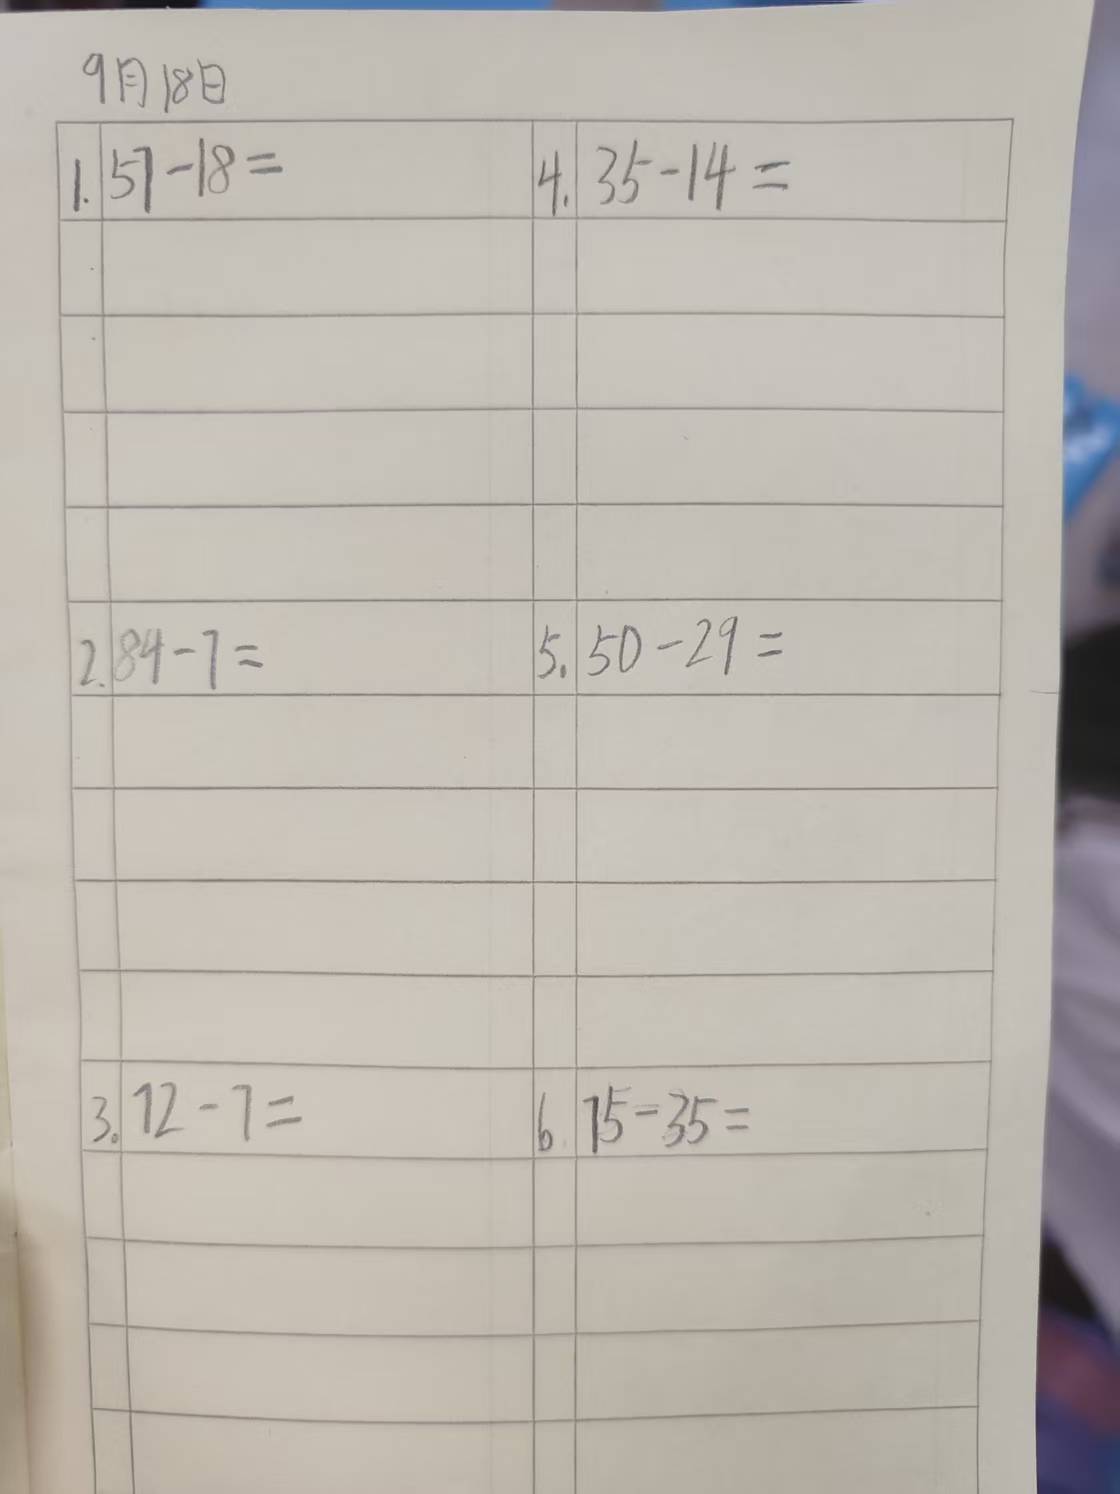 9月18日
1. 57-18=
2. 84-7=
3. 72-7=
4. 35-14=
5. 50-29=
6. 75-35=